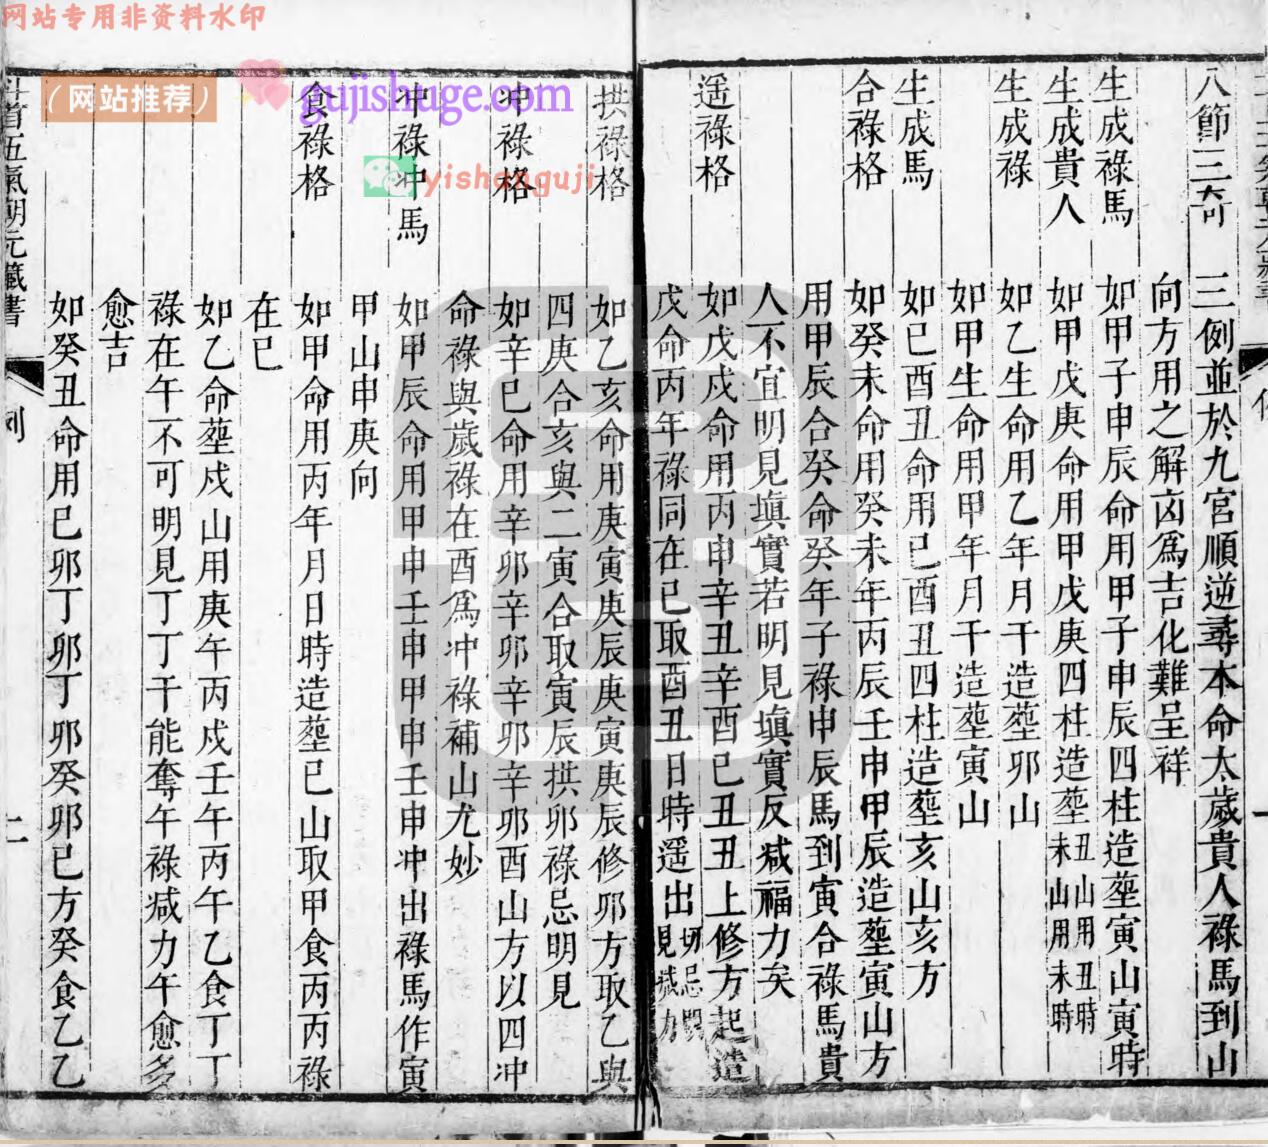 网站专用非资料水印
（网站推荐）
gujishuge.com
yishanguji
八節三奇 三例並於九宮順逆尋本命太歲貴人祿馬到山
向方用之解凶為吉化難呈祥
生成祿馬 如甲子申辰命用甲子申辰四柱造塟寅山寅時
生成貴人 如甲戊庚命用甲戊庚四柱造塟丑山用丑時未山用未時
生成祿 如乙生命用乙年月干造塟卯山
如甲生命用甲年月干造塟寅山
生成馬 如巳酉丑命用巳酉丑四柱造塟亥山亥方
合祿格 如癸未命用癸未年丙辰壬申甲辰造塟寅山方
用甲辰合癸命癸年子祿申辰馬到寅合祿馬貴
人不宜明見塡實若明見塡實反减福力矣
遥祿格 如戊戌命用丙申辛丑辛酉己丑丑上修方起造
戊命丙年祿同在巳取酉丑日時遥出切忌明見减力
拱祿格 如乙亥命用庚寅庚辰庚寅庚辰修卯方取乙與
四庚合亥與二寅合取寅辰拱卯祿忌明見
冲祿格 如辛巳命用辛卯辛卯辛卯辛卯酉山方以四冲
命祿與歲祿在酉爲冲祿補山尤妙
冲祿冲馬 如甲辰命用甲申壬申甲申壬申冲出祿馬作寅
甲山申庚向
食祿格 如甲命用丙年月日時造塟巳山取甲食丙丙祿
在巳
如乙命塟戍山用庚午丙戍壬午丙午乙食丁丁
祿在午不可明見丁丁干能奪午祿减力午愈多
愈吉
如癸丑命用己卯丁卯丁卯癸卯巳方癸食乙乙
斗首五氣朝元藏書
例
二